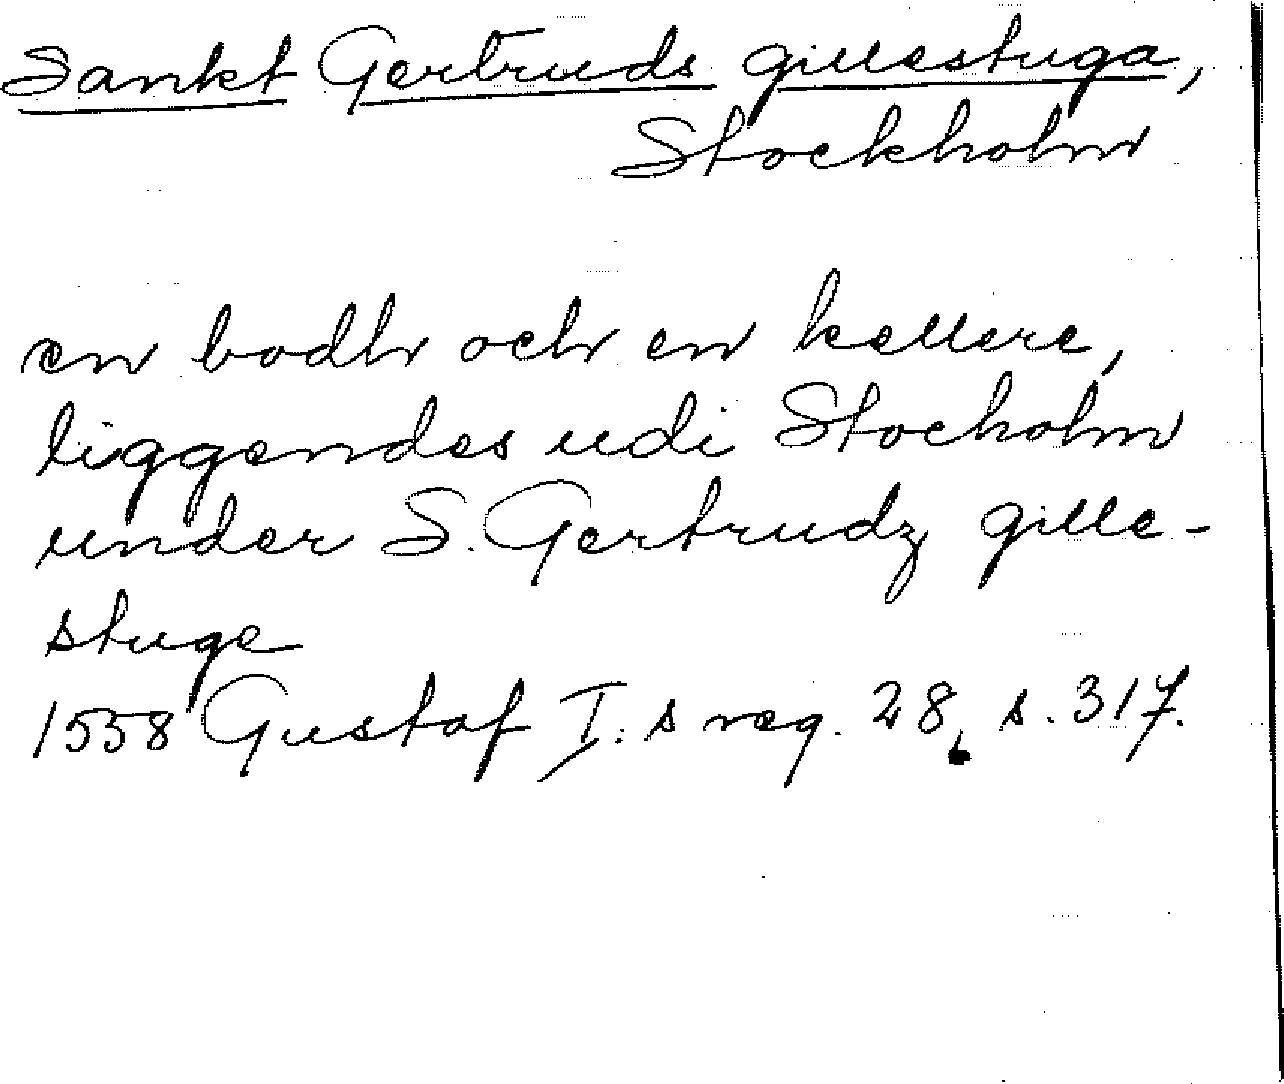 Sankt Gertruds gillestuga,
Stockholm
en bodh och en kellere,
liggendes udi Stocholm
under S. Gertrudz gille-
stuge
1558 Gustaf I:s reg. 28, s. 317.